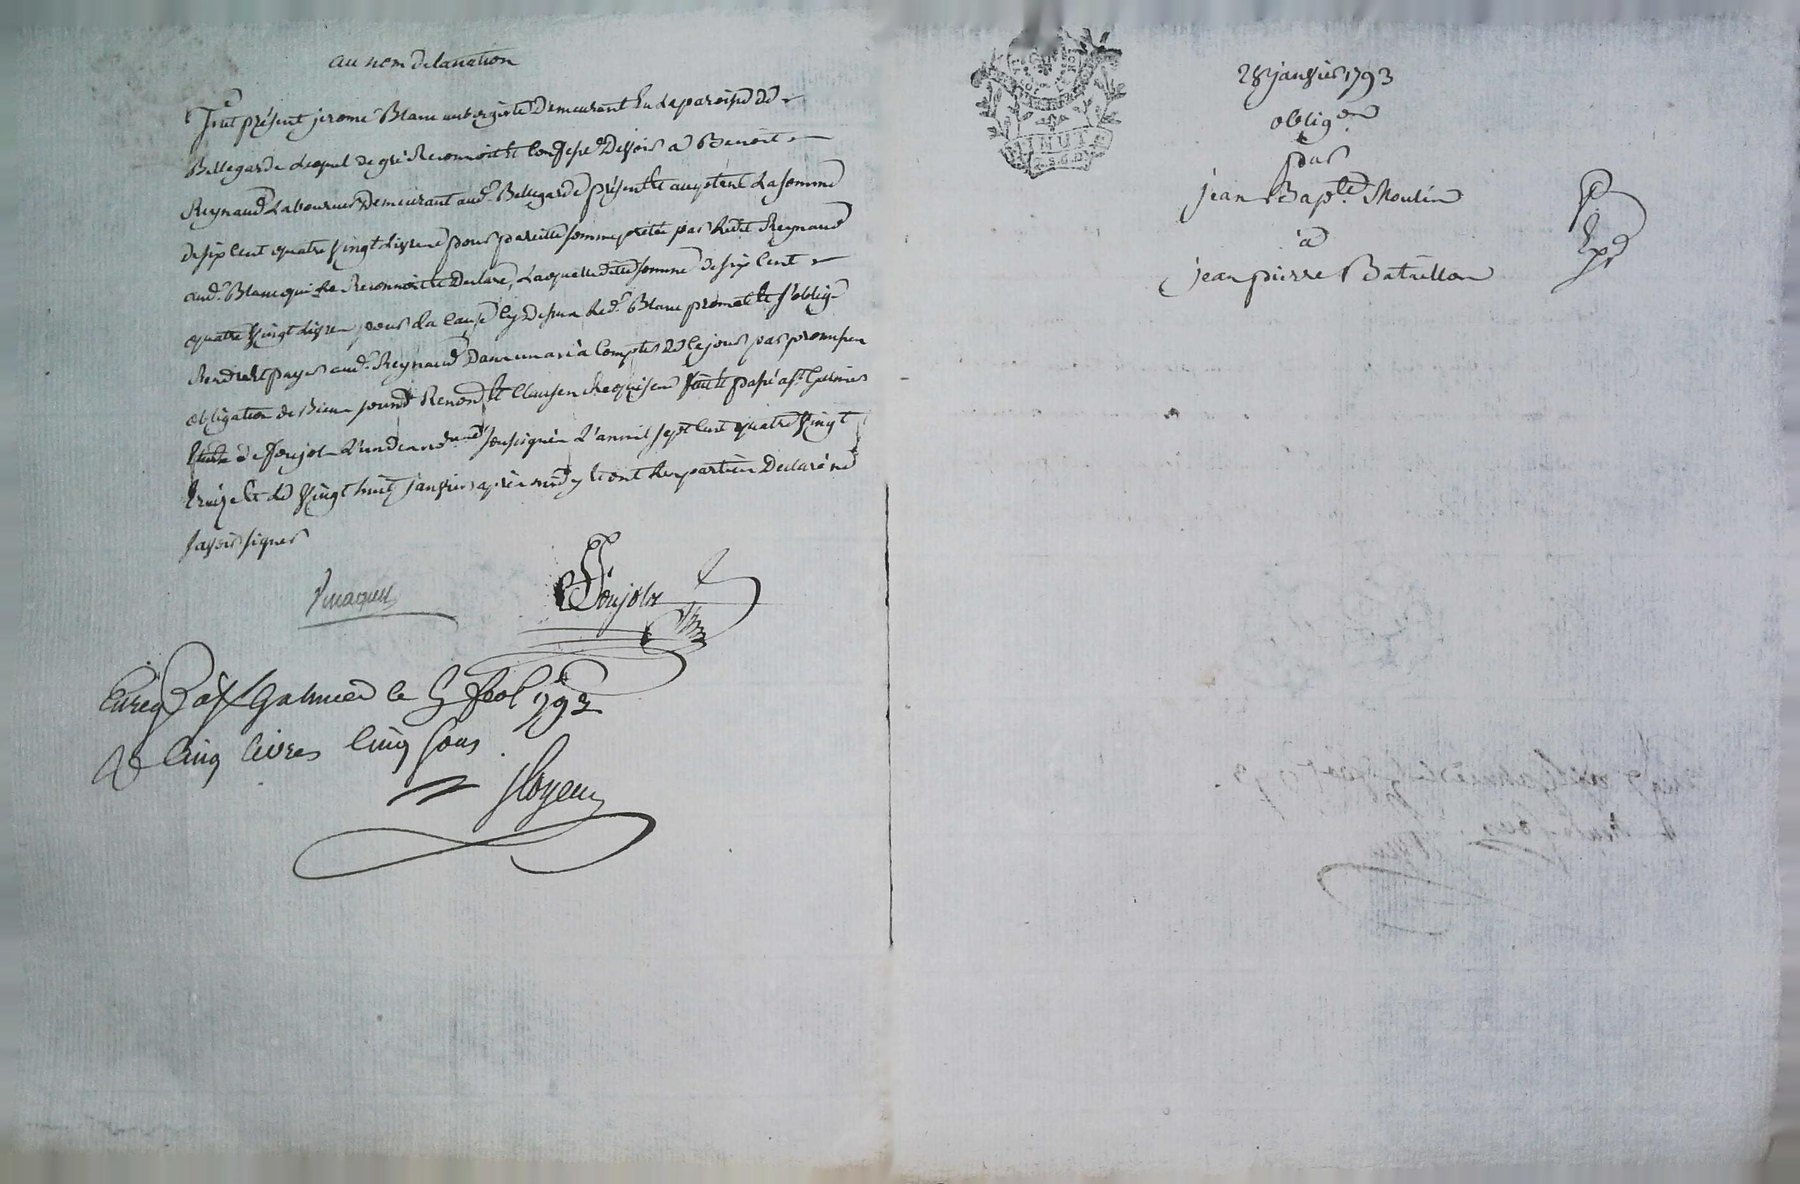 au nom de la nation
Fut présent jerome Blanc aubergiste Demeurant En la paroisse de
Bellegarde Lequel de gré Reconnoit et Confesse Devoir a Benoit
Reynaud Laboureur Demeurant aud. Bellegarde présent et acceptant La somme
de six Cent quatre Vingt Livres pour pareille somme prétée par Ledit Reynaud
aud. Blanc qui Le Reconnoit et Declare, Laquelle ditte somme de six Cent
quatre Vingt Livres pour La Cause Cy Dessus Led. Blanc promet et s'oblige
Rendre et payer aud. Reynaud Dans un an a Compter de Ce jour par promesse
obligation de Biens soumt. Renond. et Clauses Requises fait et passé a St. Galmier
Etude de Soujols L'un des nottd. soussignés L'an mil sept Cent quatre Vingt
treize et Le Vingt huit janvier après midy et ont Les parties Declaré ne
savoir signer
Soujols
Enreg a St Galmier le 5 feb 1793
R cinq livres cinq sous
28 janvier 1793
obligon
par
jean Baptte. Moulin
a
jean pierre Bataillon
Expd